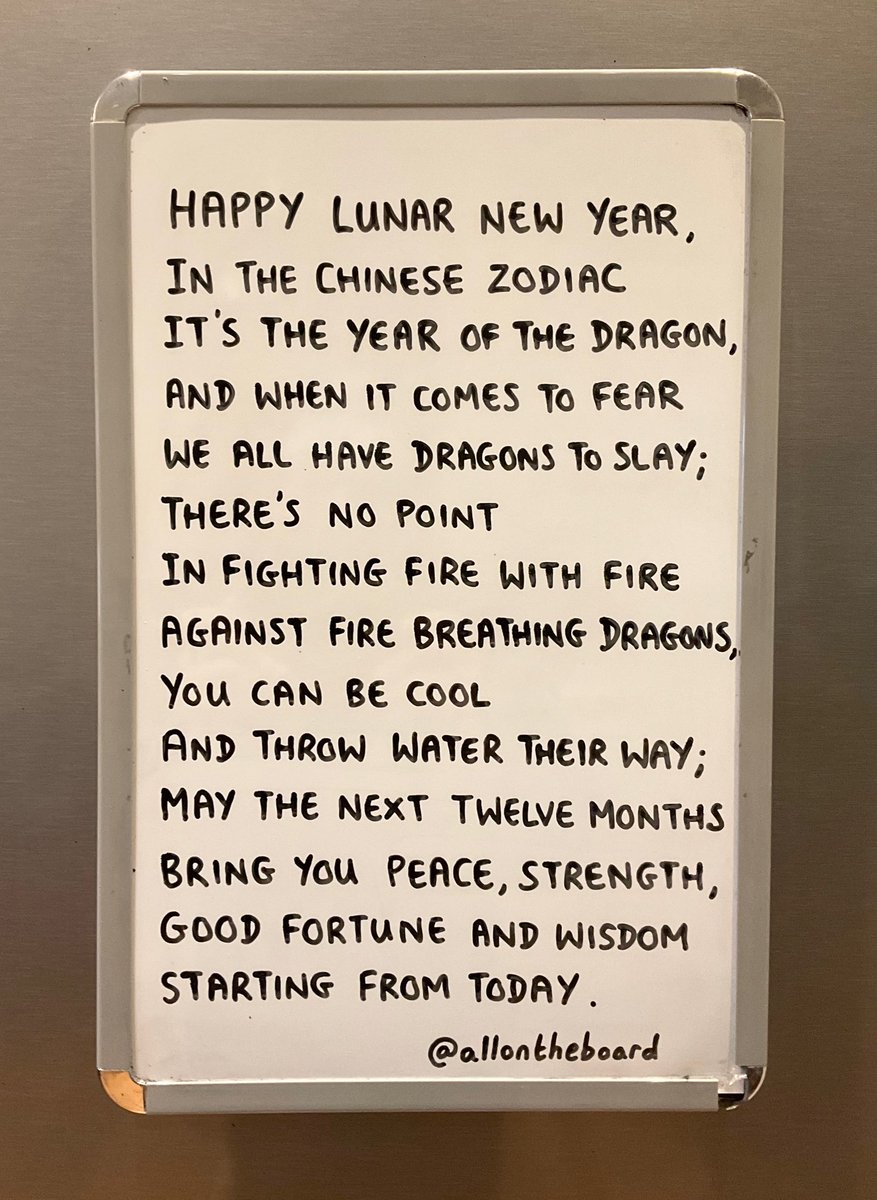 HAPPY LUNAR NEW YEAR,
IN THE CHINESE ZODIAC
IT'S THE YEAR OF THE DRAGON,
AND WHEN IT COMES TO FEAR
WE ALL HAVE DRAGONS TO SLAY;
THERE'S NO POINT
IN FIGHTING FIRE WITH FIRE
AGAINST FIRE BREATHING DRAGONS,
YOU CAN BE COOL
AND THROW WATER THEIR WAY;
MAY THE NEXT TWELVE MONTHS
BRING YOU PEACE, STRENGTH,
GOOD FORTUNE AND WISDOM
STARTING FROM TODAY.
@allontheboard